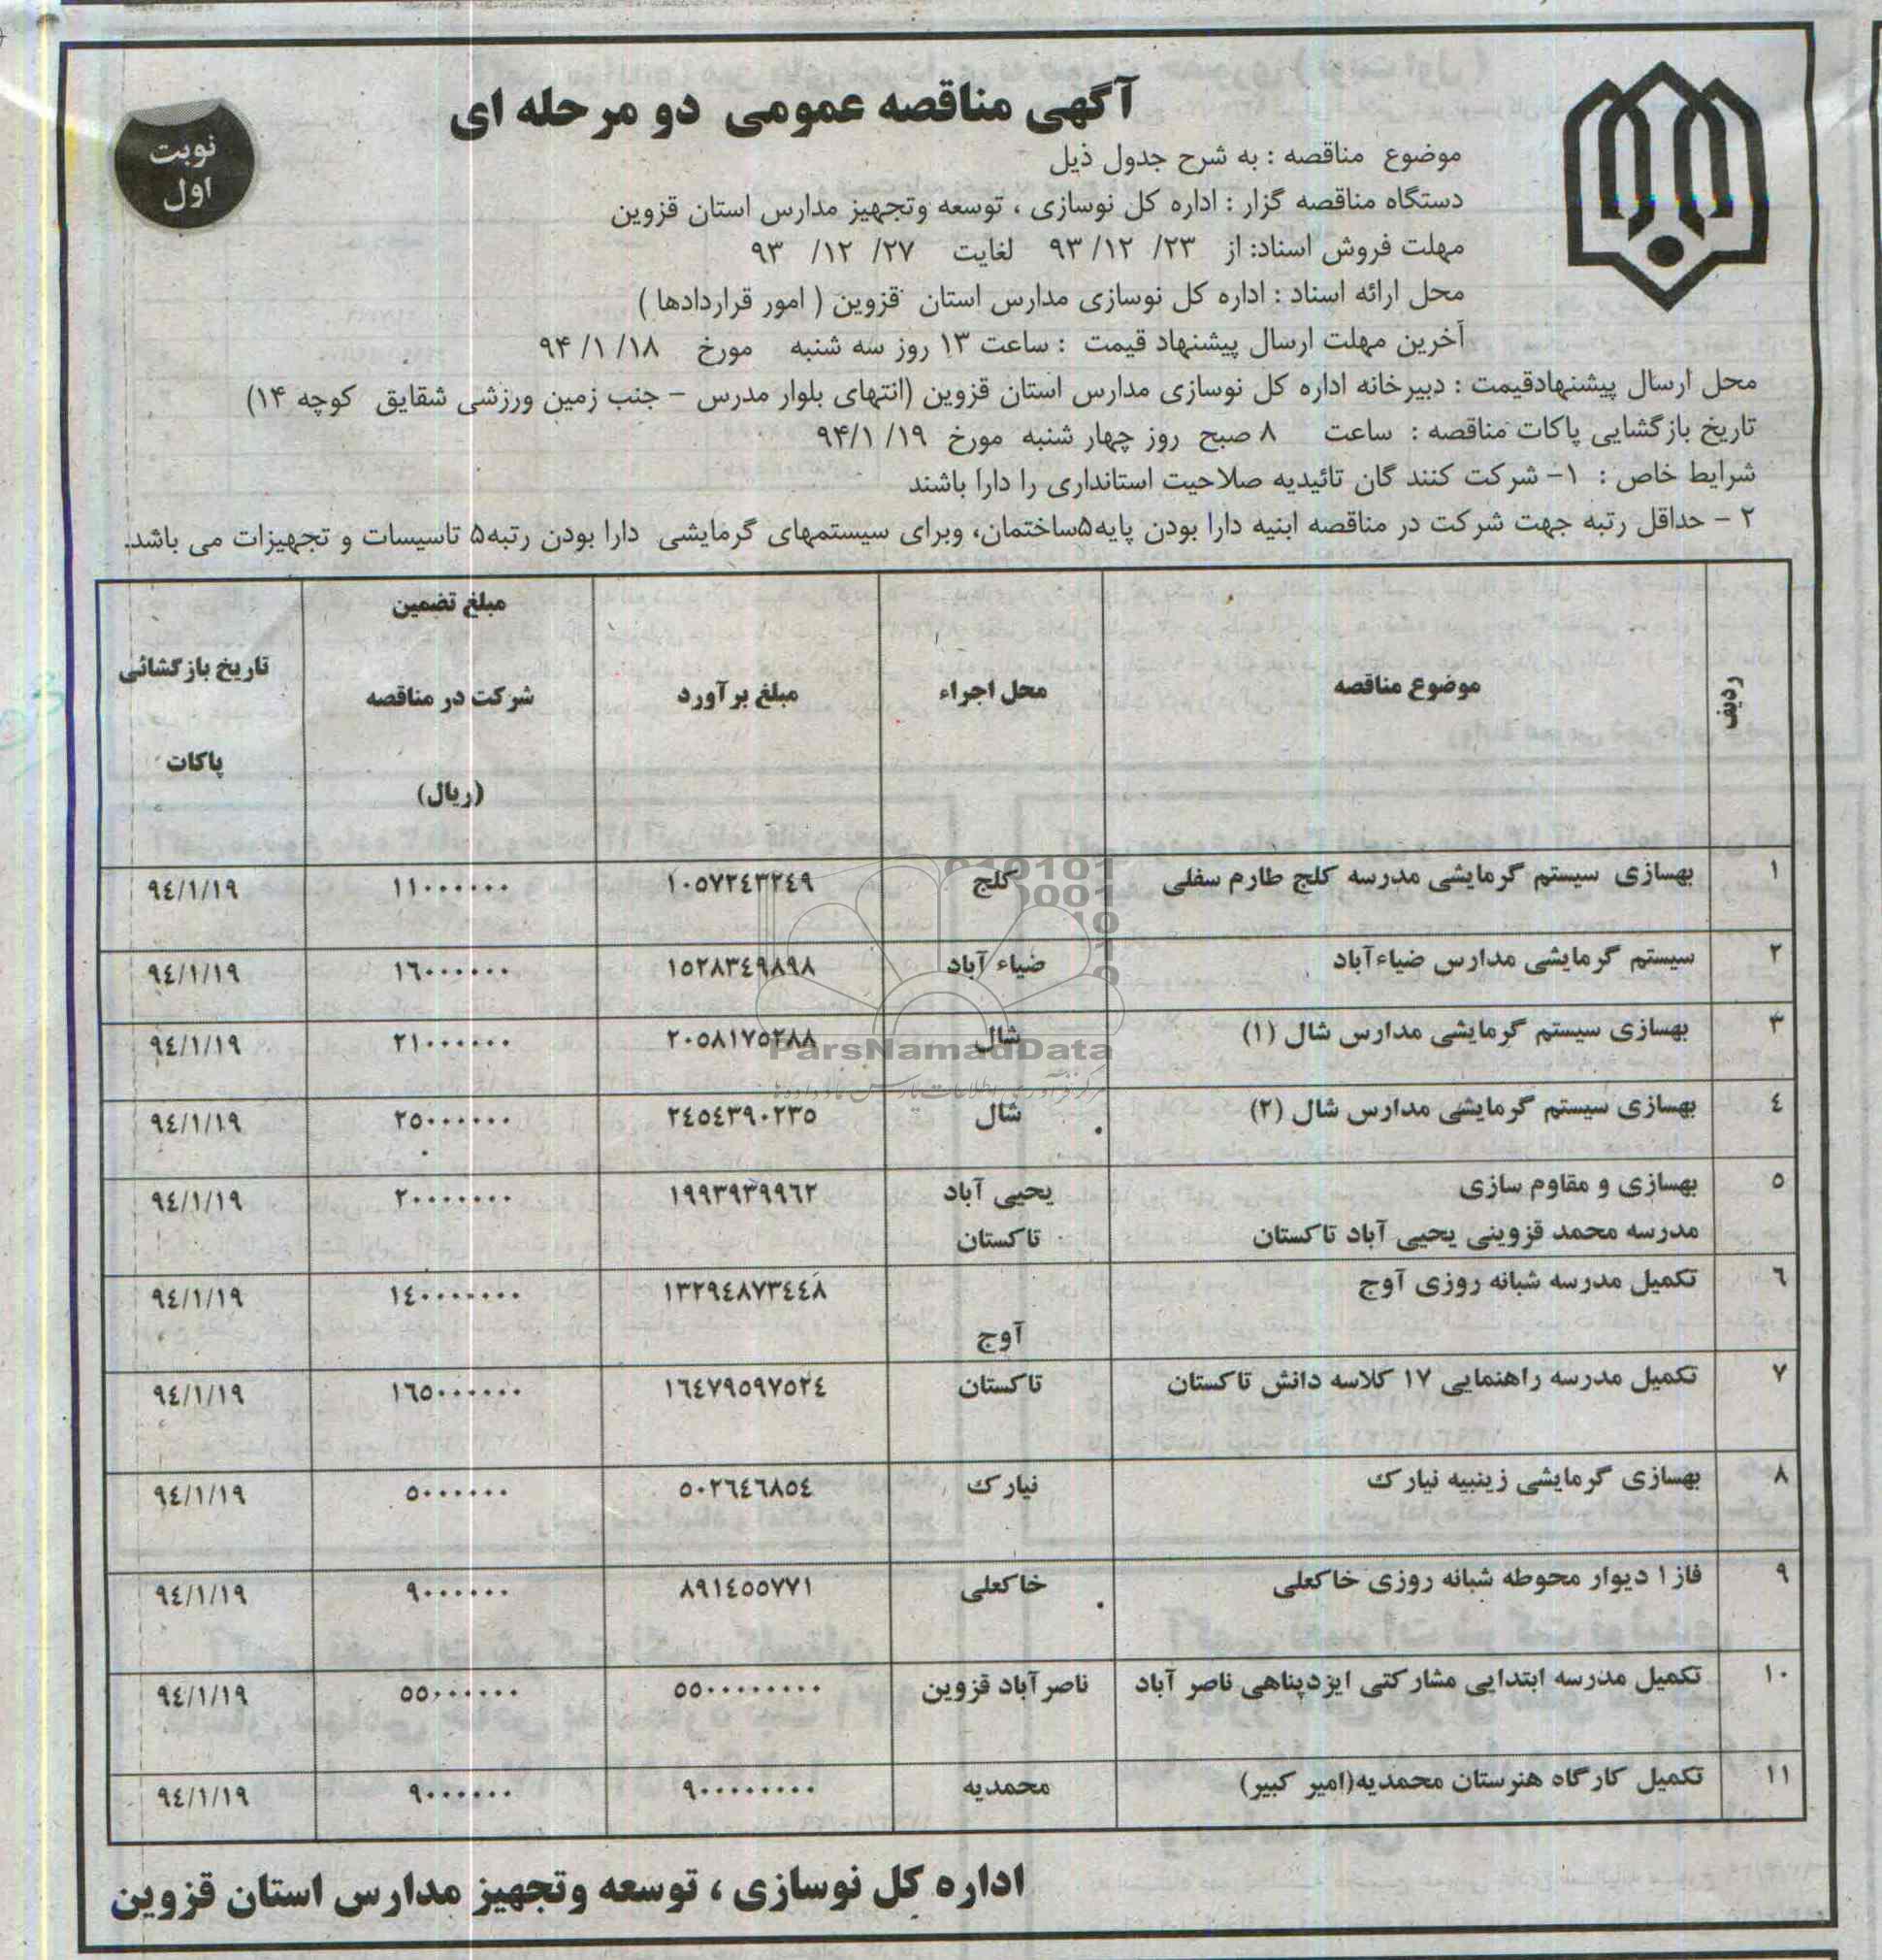 آگهی مناقصه عمومی دو مرحله ای
نوبت
اول
موضوع مناقصه : به شرح جدول ذیل
دستگاه مناقصه گزار : اداره کل نوسازی ، توسعه وتجهیز مدارس استان قزوین
مهلت فروش اسناد: از ۲۳/ ۱۲/ ۹۳ لغایت ۲۷/ ۱۲/ ۹۳
محل ارائه اسناد : اداره کل نوسازی مدارس استان قزوین ( امور قراردادها )
آخرین مهلت ارسال پیشنهاد قیمت : ساعت ۱۳ روز سه شنبه مورخ ۱۸/ ۱/ ۹۴
محل ارسال پیشنهادقیمت : دبیرخانه اداره کل نوسازی مدارس استان قزوین (انتهای بلوار مدرس – جنب زمین ورزشی شقایق کوچه ۱۴)
تاریخ بازگشایی پاکات مناقصه : ساعت ۸ صبح روز چهار شنبه مورخ ۱۹/ ۹۴/۱
شرایط خاص : ۱- شرکت کنند گان تائیدیه صلاحیت استانداری را دارا باشند
۲ – حداقل رتبه جهت شرکت در مناقصه ابنیه دارا بودن پایه۵ساختمان، وبرای سیستمهای گرمایشی دارا بودن رتبه۵ تاسیسات و تجهیزات می باشد.
ردیف موضوع مناقصه محل اجراء مبلغ برآورد مبلغ تضمین شرکت در مناقصه (ریال) تاریخ بازگشائی پاکات
۱ بهسازی سیستم گرمایشی مدرسه کلج طارم سفلی کلج ۱۰۵۷۲۴۳۲۴۹ ۱۱۰۰۰۰۰۰ ۹٤/۱/۱۹
۲ سیستم گرمایشی مدارس ضیاءآباد ضیاء آباد ۱۵۲۸۳٤۹۸۹۸ ۱٦۰۰۰۰۰۰ ۹٤/۱/۱۹
۳ بهسازی سیستم گرمایشی مدارس شال (۱) شال ۲۰۵۸۱۷۵۲۸۸ ۲۱۰۰۰۰۰۰ ۹٤/۱/۱۹
٤ بهسازی سیستم گرمایشی مدارس شال (۲) شال ۲٤۵٤۳۹۰۲۳۵ ۲۵۰۰۰۰۰۰ ۹٤/۱/۱۹
۵ بهسازی و مقاوم سازی یحیی آباد ۱۹۹۳۹۳۹۹٦۲ ۲۰۰۰۰۰۰۰ ۹٤/۱/۱۹
مدرسه محمد قزوینی یحیی آباد تاکستان تاکستان
٦ تکمیل مدرسه شبانه روزی آوج آوج ۱۳۲۹٤۸۷۳٤٤۸ ۱٤۰۰۰۰۰۰۰ ۹٤/۱/۱۹
۷ تکمیل مدرسه راهنمایی ۱۷ کلاسه دانش تاکستان تاکستان ۱٦٤۷۹۵۹۷۵۲٤ ۱٦۵۰۰۰۰۰۰ ۹٤/۱/۱۹
۸ بهسازی گرمایشی زینبیه نیارک نیارک ۵۰۲٦٤٦۸۵٤ ۵۰۰۰۰۰۰ ۹٤/۱/۱۹
۹ فاز۱ دیوار محوطه شبانه روزی خاکعلی خاکعلی ۸۹۱٤۵۵۷۷۱ ۹۰۰۰۰۰۰ ۹٤/۱/۱۹
۱۰ تکمیل مدرسه ابتدایی مشارکتی ایزدپناهی ناصر آباد ناصرآباد قزوین ۵۵۰۰۰۰۰۰۰۰ ۵۵۰۰۰۰۰۰ ۹٤/۱/۱۹
۱۱ تکمیل کارگاه هنرستان محمدیه(امیر کبیر) محمدیه ۹۰۰۰۰۰۰۰۰ ۹۰۰۰۰۰۰ ۹٤/۱/۱۹
ParsNamadData
اداره کل نوسازی ، توسعه وتجهیز مدارس استان قزوین